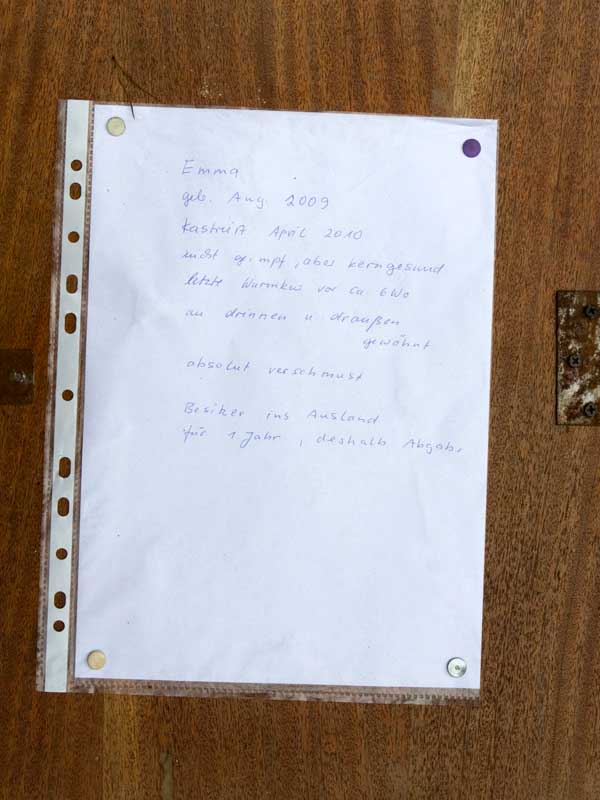 Emma
geb. Aug. 2009
Kastriert April 2010
nicht geimpf, aber kerngesund
letzte Wurmkur vor ca. 6 Wo
an drinnen u draußen
gewöhnt
absolut verschmust
Besitzer ins Ausland
für 1 Jahr, deshalb Abgabe